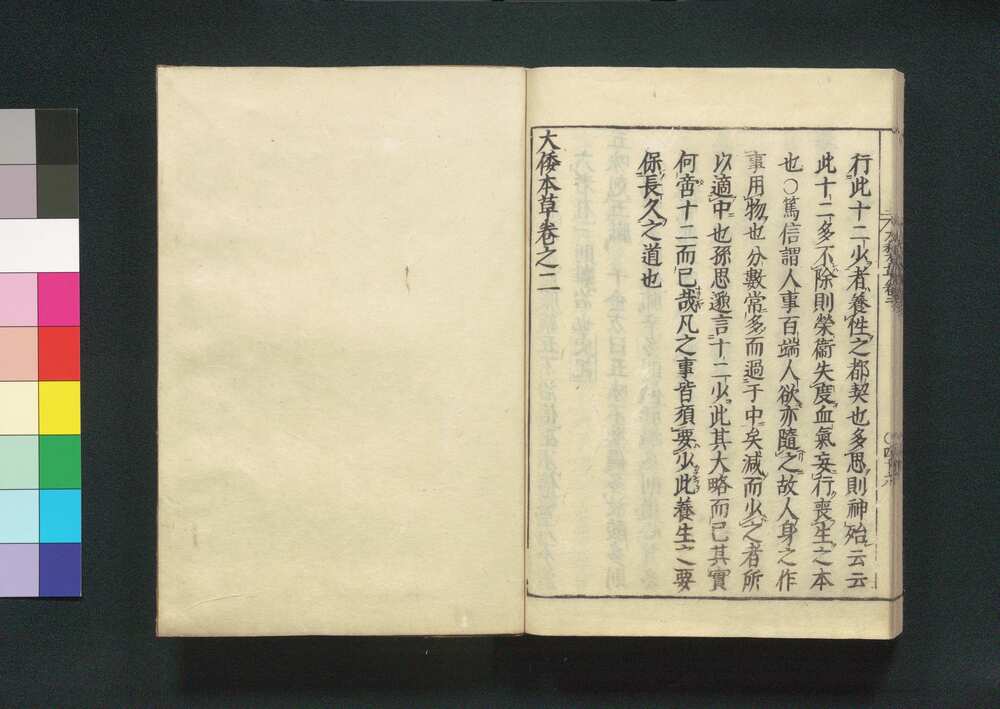 行此十二少者養性之都契也多思則神殆云云
此十二多不除則榮衞失度血氣妄行喪生之本
也○篤信謂人事百端人欲亦隨之故人身之作
事用物也分數常多而過于中矣減而少之者所
以適中也孫思邈言十二少此其大略而已其實
何啻十二而已哉凡之事皆須要少此養生之要
保長久之道也
大倭本草卷之二